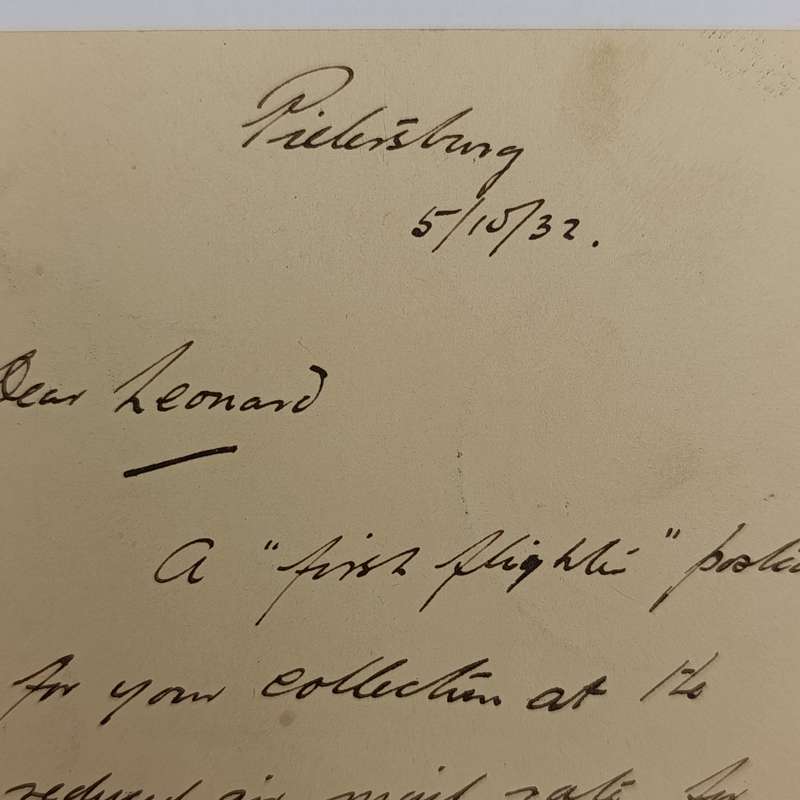 Pietersburg
5/10/32.
Dear Leonard
A "first flight" postin
for your collection at the
reduced air mail rate for